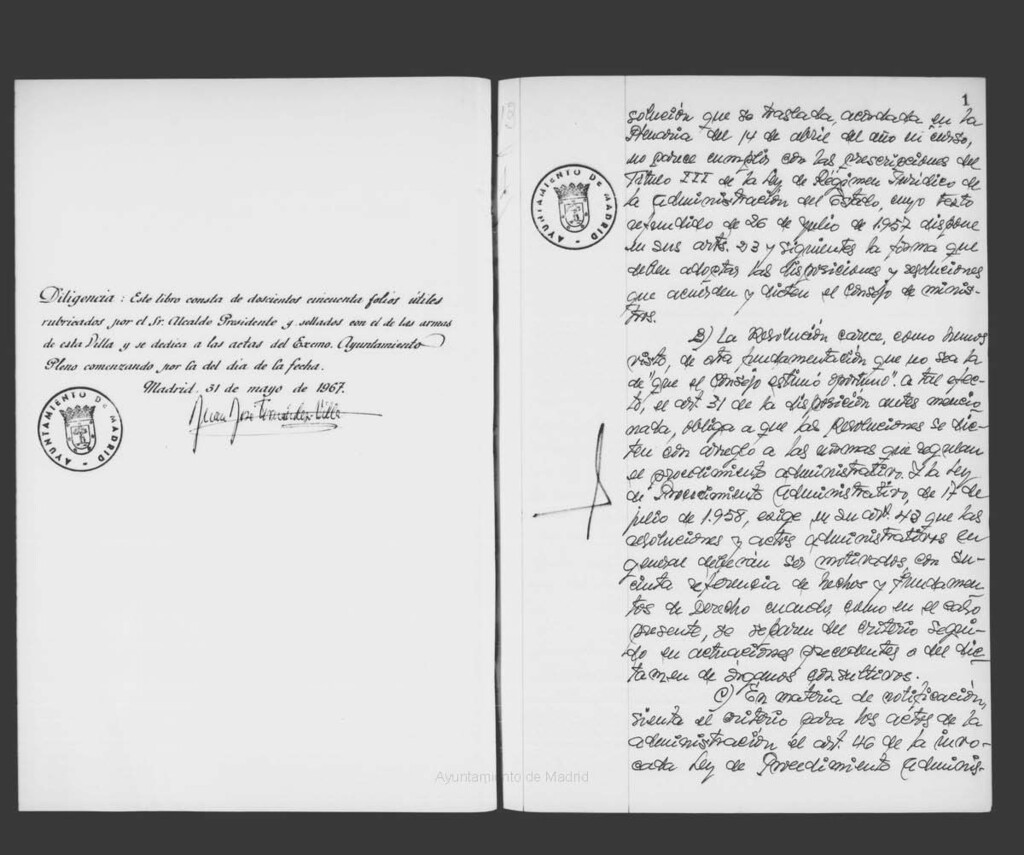 Diligencia: Este libro consta de doscientos cincuenta folios útiles
rubricados por el Sr. Alcalde Presidente y sellados con el de las armas
de esta Villa y se dedica a las actas del Excmo. Ayuntamiento
Pleno comenzando por la del día de la fecha.
Madrid, 31 de mayo de 1967.
Juan José Fernández-Villa
AYUNTAMIENTO DE MADRID
1
AYUNTAMIENTO DE MADRID
solución que se traslada, acordada en la
Plenaria del 14 de abril del año en curso,
no parece cumplir con las prescripciones del
Título III de la Ley de Régimen Jurídico de
la Administración del Estado, cuyo texto
refundido de 26 de julio de 1.957 dispone
en sus arts. 23 y siguientes la forma que
deben adoptar las disposiciones y resoluciones
que acuerden y dicten el Consejo de minis-
tros.
B) La Resolución carece, como hemos
visto, de otra fundamentación que no sea la
de "que el Consejo estimó oportuno". A tal efec-
to, el art. 31 de la disposición antes mencio-
nada, obliga a que las Resoluciones se dic-
ten con arreglo a las normas que regulan
el procedimiento administrativo. Y la Ley
de Procedimiento Administrativo, de 17 de
julio de 1.958, exige en su art. 43 que las
resoluciones y actos administrativos en
general deberán ser motivados, con su-
cinta referencia de hechos y fundamen-
tos de Derecho cuando, como en el caso
presente, se separen del criterio segui-
do en actuaciones precedentes o del dic-
tamen de órganos consultivos.
C) En materia de notificación,
sienta el criterio para los actos de la
administración el art. 46 de la invo-
cada Ley de Procedimiento Adminis-
Ayuntamiento de Madrid